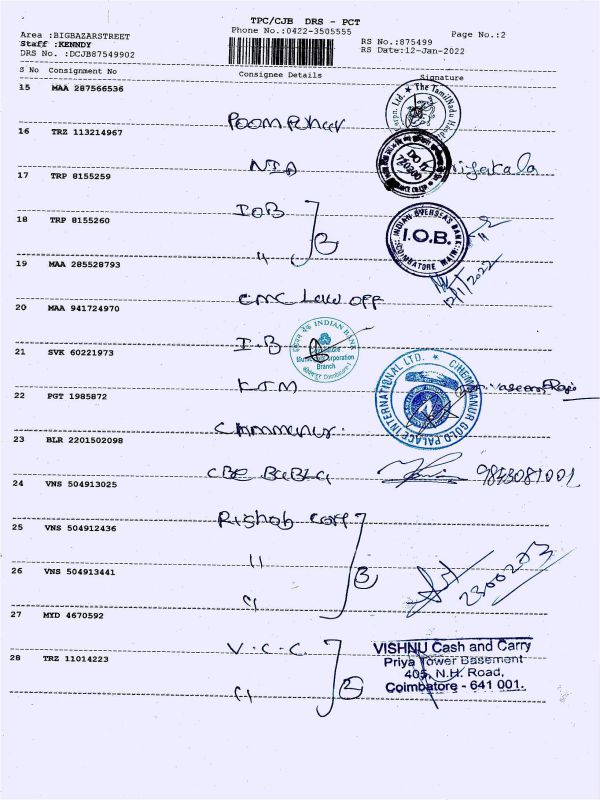 TPC/CJB DRS - PCT
Phone No.:0422-3505555
Page No.:2
Area :BIGBAZARSTREET
Staff :KENNDY
DRS No. :DCJB87549902
RS No.:875499
RS Date:12-Jan-2022
S No Consignment No Consignee Details Signature
15 MAA 287566536
Poompuhar
16 TRZ 113214967
NIA
17 TRP 8155259
IOB
18 TRP 8155260
〃
INDIAN OVERSEAS BANK
I.O.B.
COIMBATORE MAIN
12/1/2022
19 MAA 285528793
CMC Law off
20 MAA 941724970
I.B
INDIAN BANK
Branch
21 SVK 60221973
KJM
22 PGT 1985872
Chmmanur.
CHEMMANUR GOLD PALACE INTERNATIONAL LTD.
23 BLR 2201502098
CBE
9843081001
24 VNS 504913025
Rishab Corp
25 VNS 504912436
〃
26 VNS 504913441
〃
2300203
27 MYD 4670592
V.C.C.
28 TRZ 11014223
〃
VISHNU Cash and Carry
Priya Tower Basement
405, N.H. Road,
Coimbatore - 641 001.